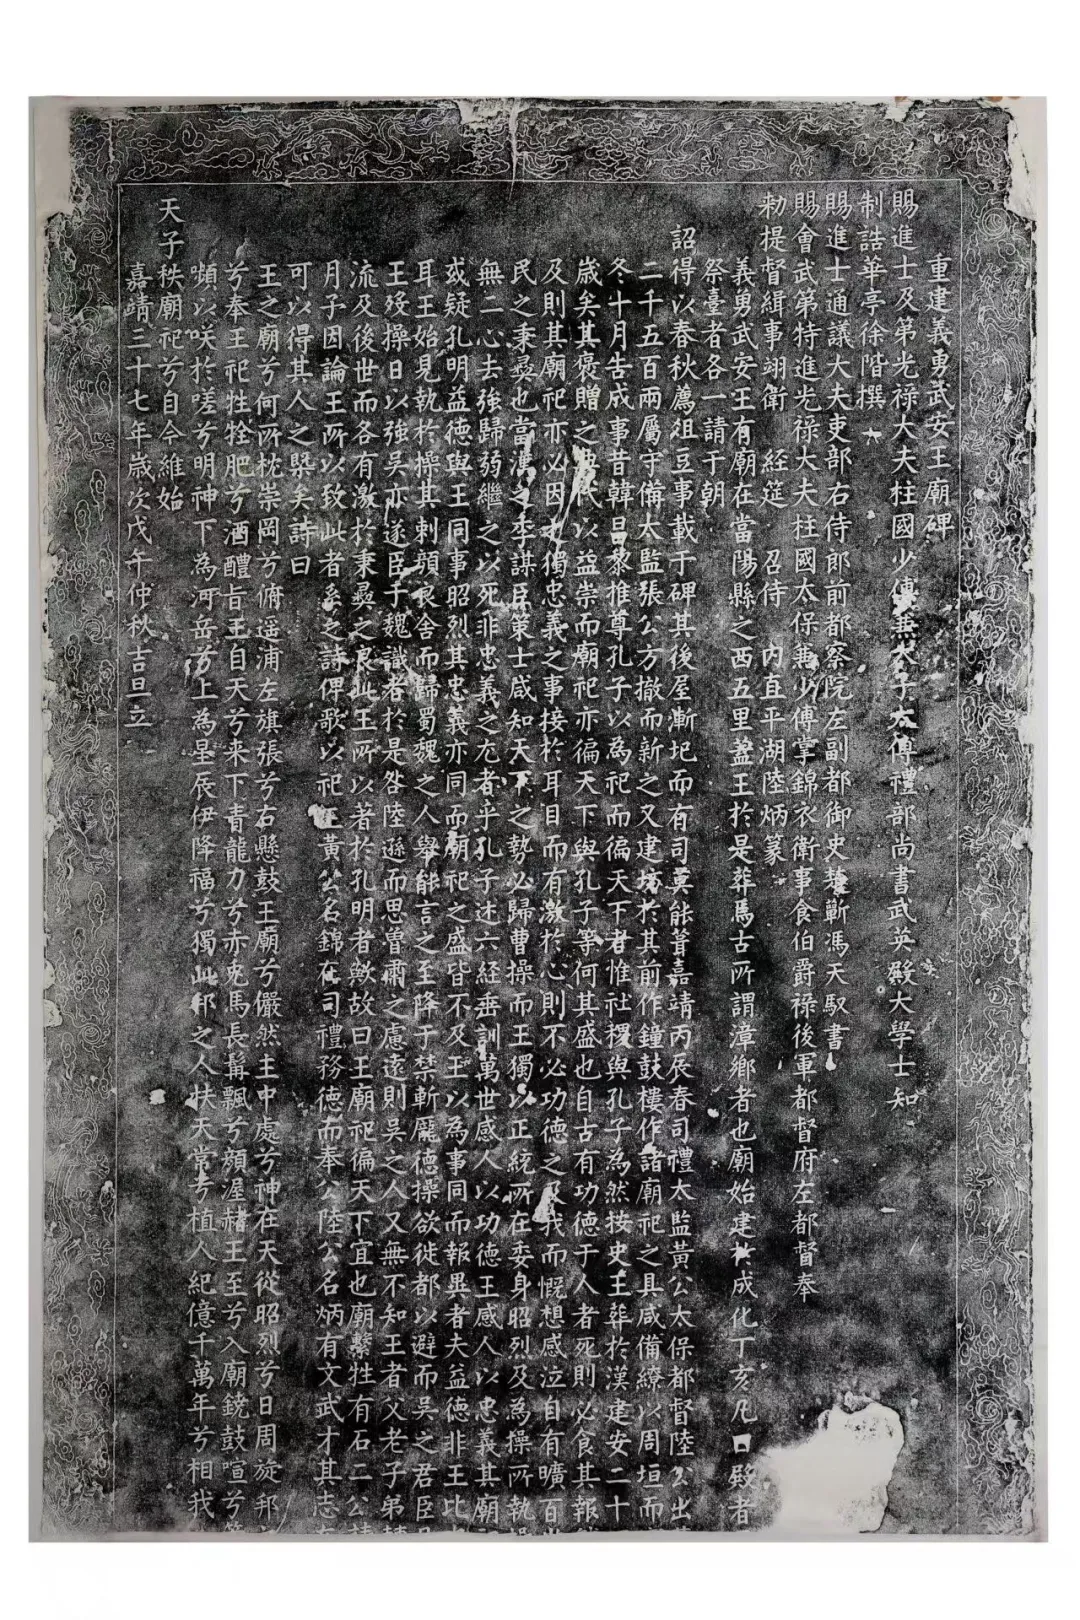 重建義勇武安王廟碑
賜進士及第光祿大夫柱國少傅兼太子太傅禮部尚書武英殿大學士知
制誥華亭徐階撰
賜進士通議大夫吏部右侍郎前都察院左副都御史楚蘄馮天馭書
賜會武第特進光祿大夫柱國太保兼少傅掌錦衣衛事食伯爵祿後軍都督府左都督奉
勑提督緝事翊衛 經筵 召侍 內直平湖陸炳篆
義勇武安王有廟在當陽縣之西五里盖王於是葬焉古所謂漳鄉者也廟始建於成化丁亥凡 殿者
祭臺者各一請于朝
詔得以春秋薦俎豆事載于碑其後屋漸圮而有司莫能葺嘉靖丙辰春司禮太監黃公太保都督陸公出
二千五百兩屬守備太監張公方撤而新之又建坊於其前作鐘鼓樓作諸廟祀之具咸備繚以周垣而
冬十月告成事昔韓昌黎推尊孔子以為祀而徧天下者惟社稷與孔子為然按史王葬於漢建安二十
歲矣其褒贈之 代以益崇而廟祀亦徧天下與孔子等何其盛也自古有功德于人者死則必食其報
及則其廟祀亦必因 獨忠義之事接於耳目而有激於心則不必功德之及我而慨想感泣自有曠百
民之秉彞也當漢之季謀臣策士咸知天下之勢必歸曹操而王獨以正統所在委身昭烈及為操所執
無二心去強歸弱繼之以死非忠義之尤者乎孔子述六經垂訓萬世感人以功德王感人以忠義其廟
或疑孔明益德與王同事昭烈其忠義亦同而廟祀之盛皆不及王以為事同而報異者夫益德非王比
耳王始見執於操其刺顏良舍而歸蜀魏之人舉能言之至降于禁斬龐德操欲徙都以避而吳之君臣
王歿操日以強吳亦遂臣于魏識者於是咎陸遜而思魯肅之慮遠則吳之人又無不知王者父老子弟
流及後世而各有激於秉彞之良此王所以著於孔明者歟故曰王廟祀徧天下宜也廟繫牲有石二公
月子因論王所以致此者系之詩俾歌以祀王黃公名錦在司禮務德而奉公陸公名炳有文武才其志
可以得其人之槩矣詩曰
王之廟兮何所枕崇岡兮俯遥浦左旗張兮右懸鼓王廟兮儼然主中處兮神在天從昭烈兮日周旋邦
兮奉王祀牲牷肥兮酒醴旨王自天兮来下青龍刀兮赤兔馬長髯飄兮顏渥赭王至兮入廟鐃鼓喧兮
嚬以咲於嗟兮明神下為河岳兮上為星辰伊降福兮獨此邦之人扶天常兮植人紀億千萬年兮相我
天子秩廟祀兮自今維始
嘉靖三十七年歲次戊午仲秋吉旦立